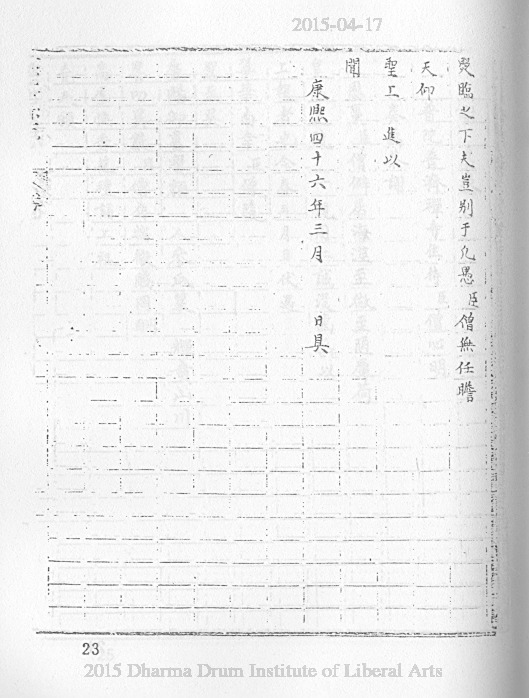 2015-04-17
熒臨之下夫豈別于凡愚臣僧無任瞻
天仰
聖上進以
聞
康熙四十六年三月 日具
23
2015 Dharma Drum Institute of Liberal Arts